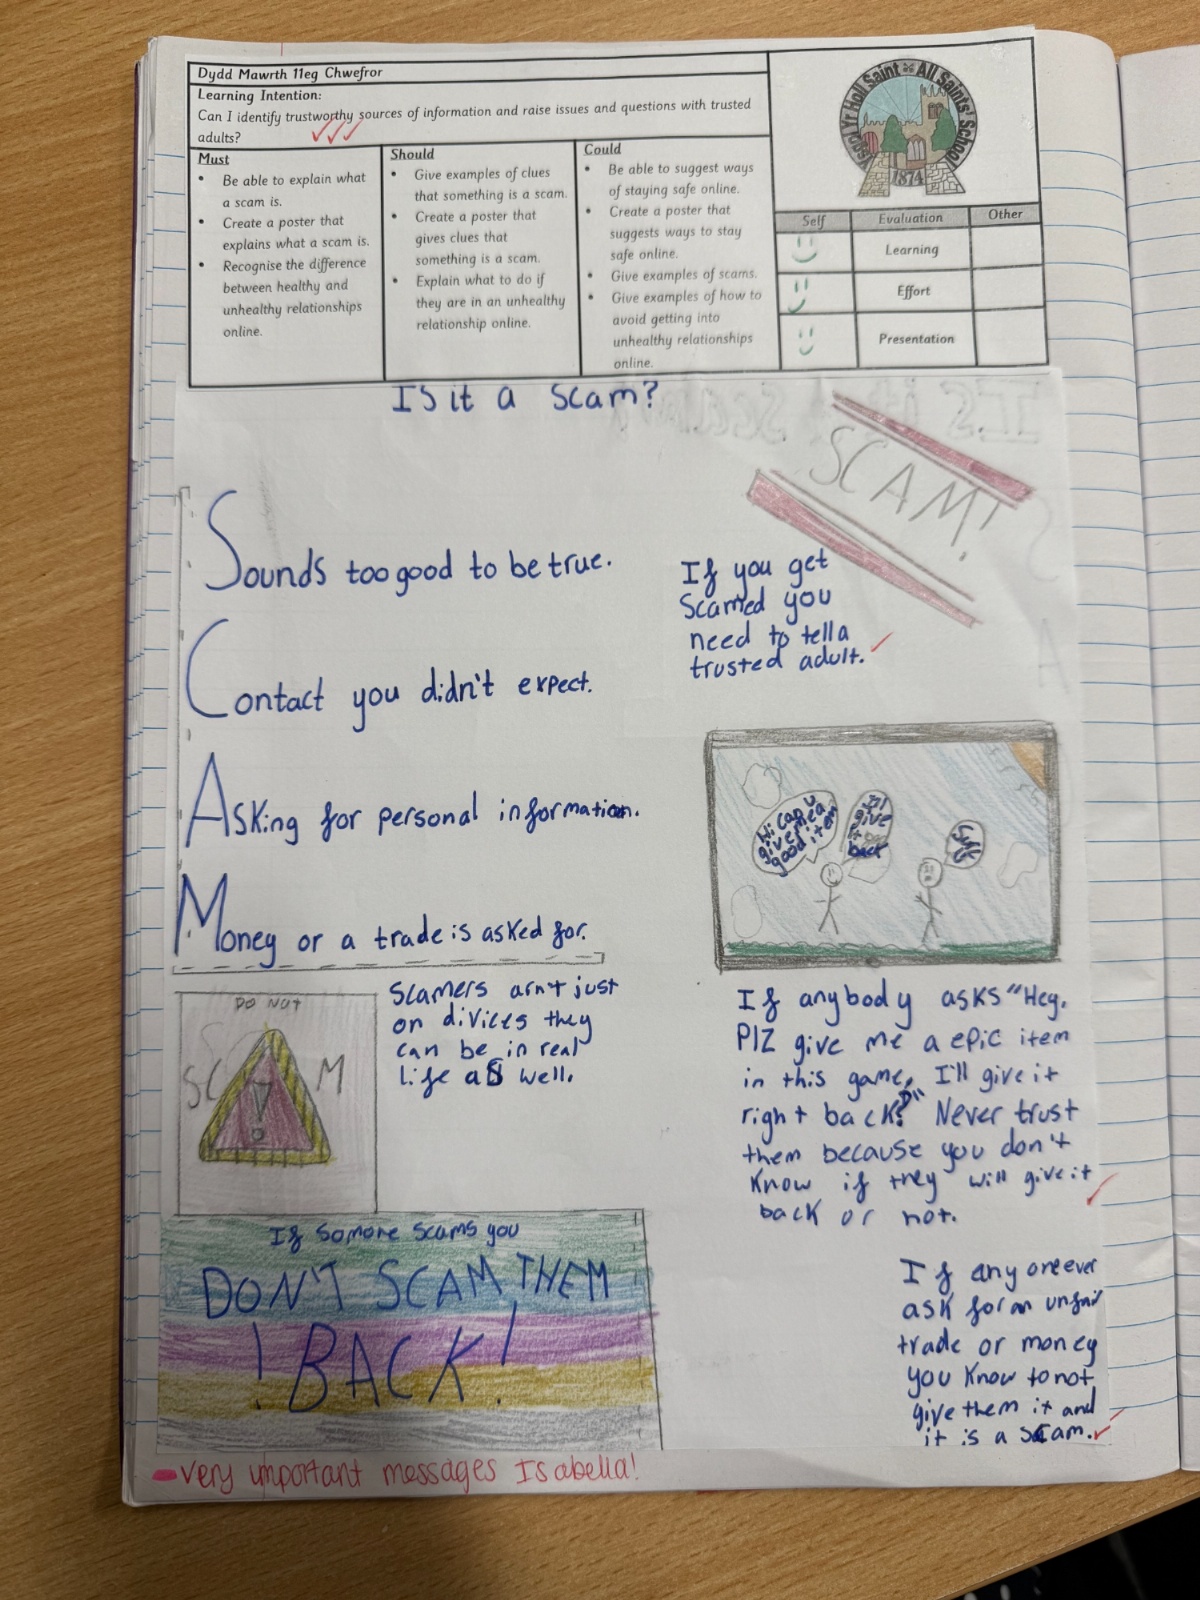 Dydd Mawrth 11eg Chwefror
Learning Intention:
Can I identify trustworthy sources of information and raise issues and questions with trusted
adults?
Must
• Be able to explain what
a scam is.
• Create a poster that
explains what a scam is.
• Recognise the difference
between healthy and
unhealthy relationships
online.
Should
• Give examples of clues
that something is a scam.
• Create a poster that
gives clues that
something is a scam.
• Explain what to do if
they are in an unhealthy
relationship online.
Could
• Be able to suggest ways
of staying safe online.
• Create a poster that
suggests ways to stay
safe online.
• Give examples of scams.
• Give examples of how to
avoid getting into
unhealthy relationships
online.
Ysgol Yr Holl Saint All Saints' School
1874
Self Evaluation Other
Learning
Effort
Presentation
Is it a scam?
SCAM!
Sounds too good to be true.
Contact you didn't expect.
Asking for personal information.
Money or a trade is asked for.
If you get
scamed you
need to tell a
trusted adult.
Hi can u
give me a
good item
I'll
give
it
back
Sure
DO NOT
SC M
!
Scamers arn't just
on divices they
can be in real
life as well.
If anybody asks "Hey,
Plz give me a epic item
in this game, I'll give it
right back?" Never trust
them because you don't
know if they will give it
back or not.
If somone scams you
DON'T SCAM THEM
! BACK!
If any one ever
ask for an unfair
trade or money
you know to not
give them it and
it is a scam.
Very important messages Isabella!